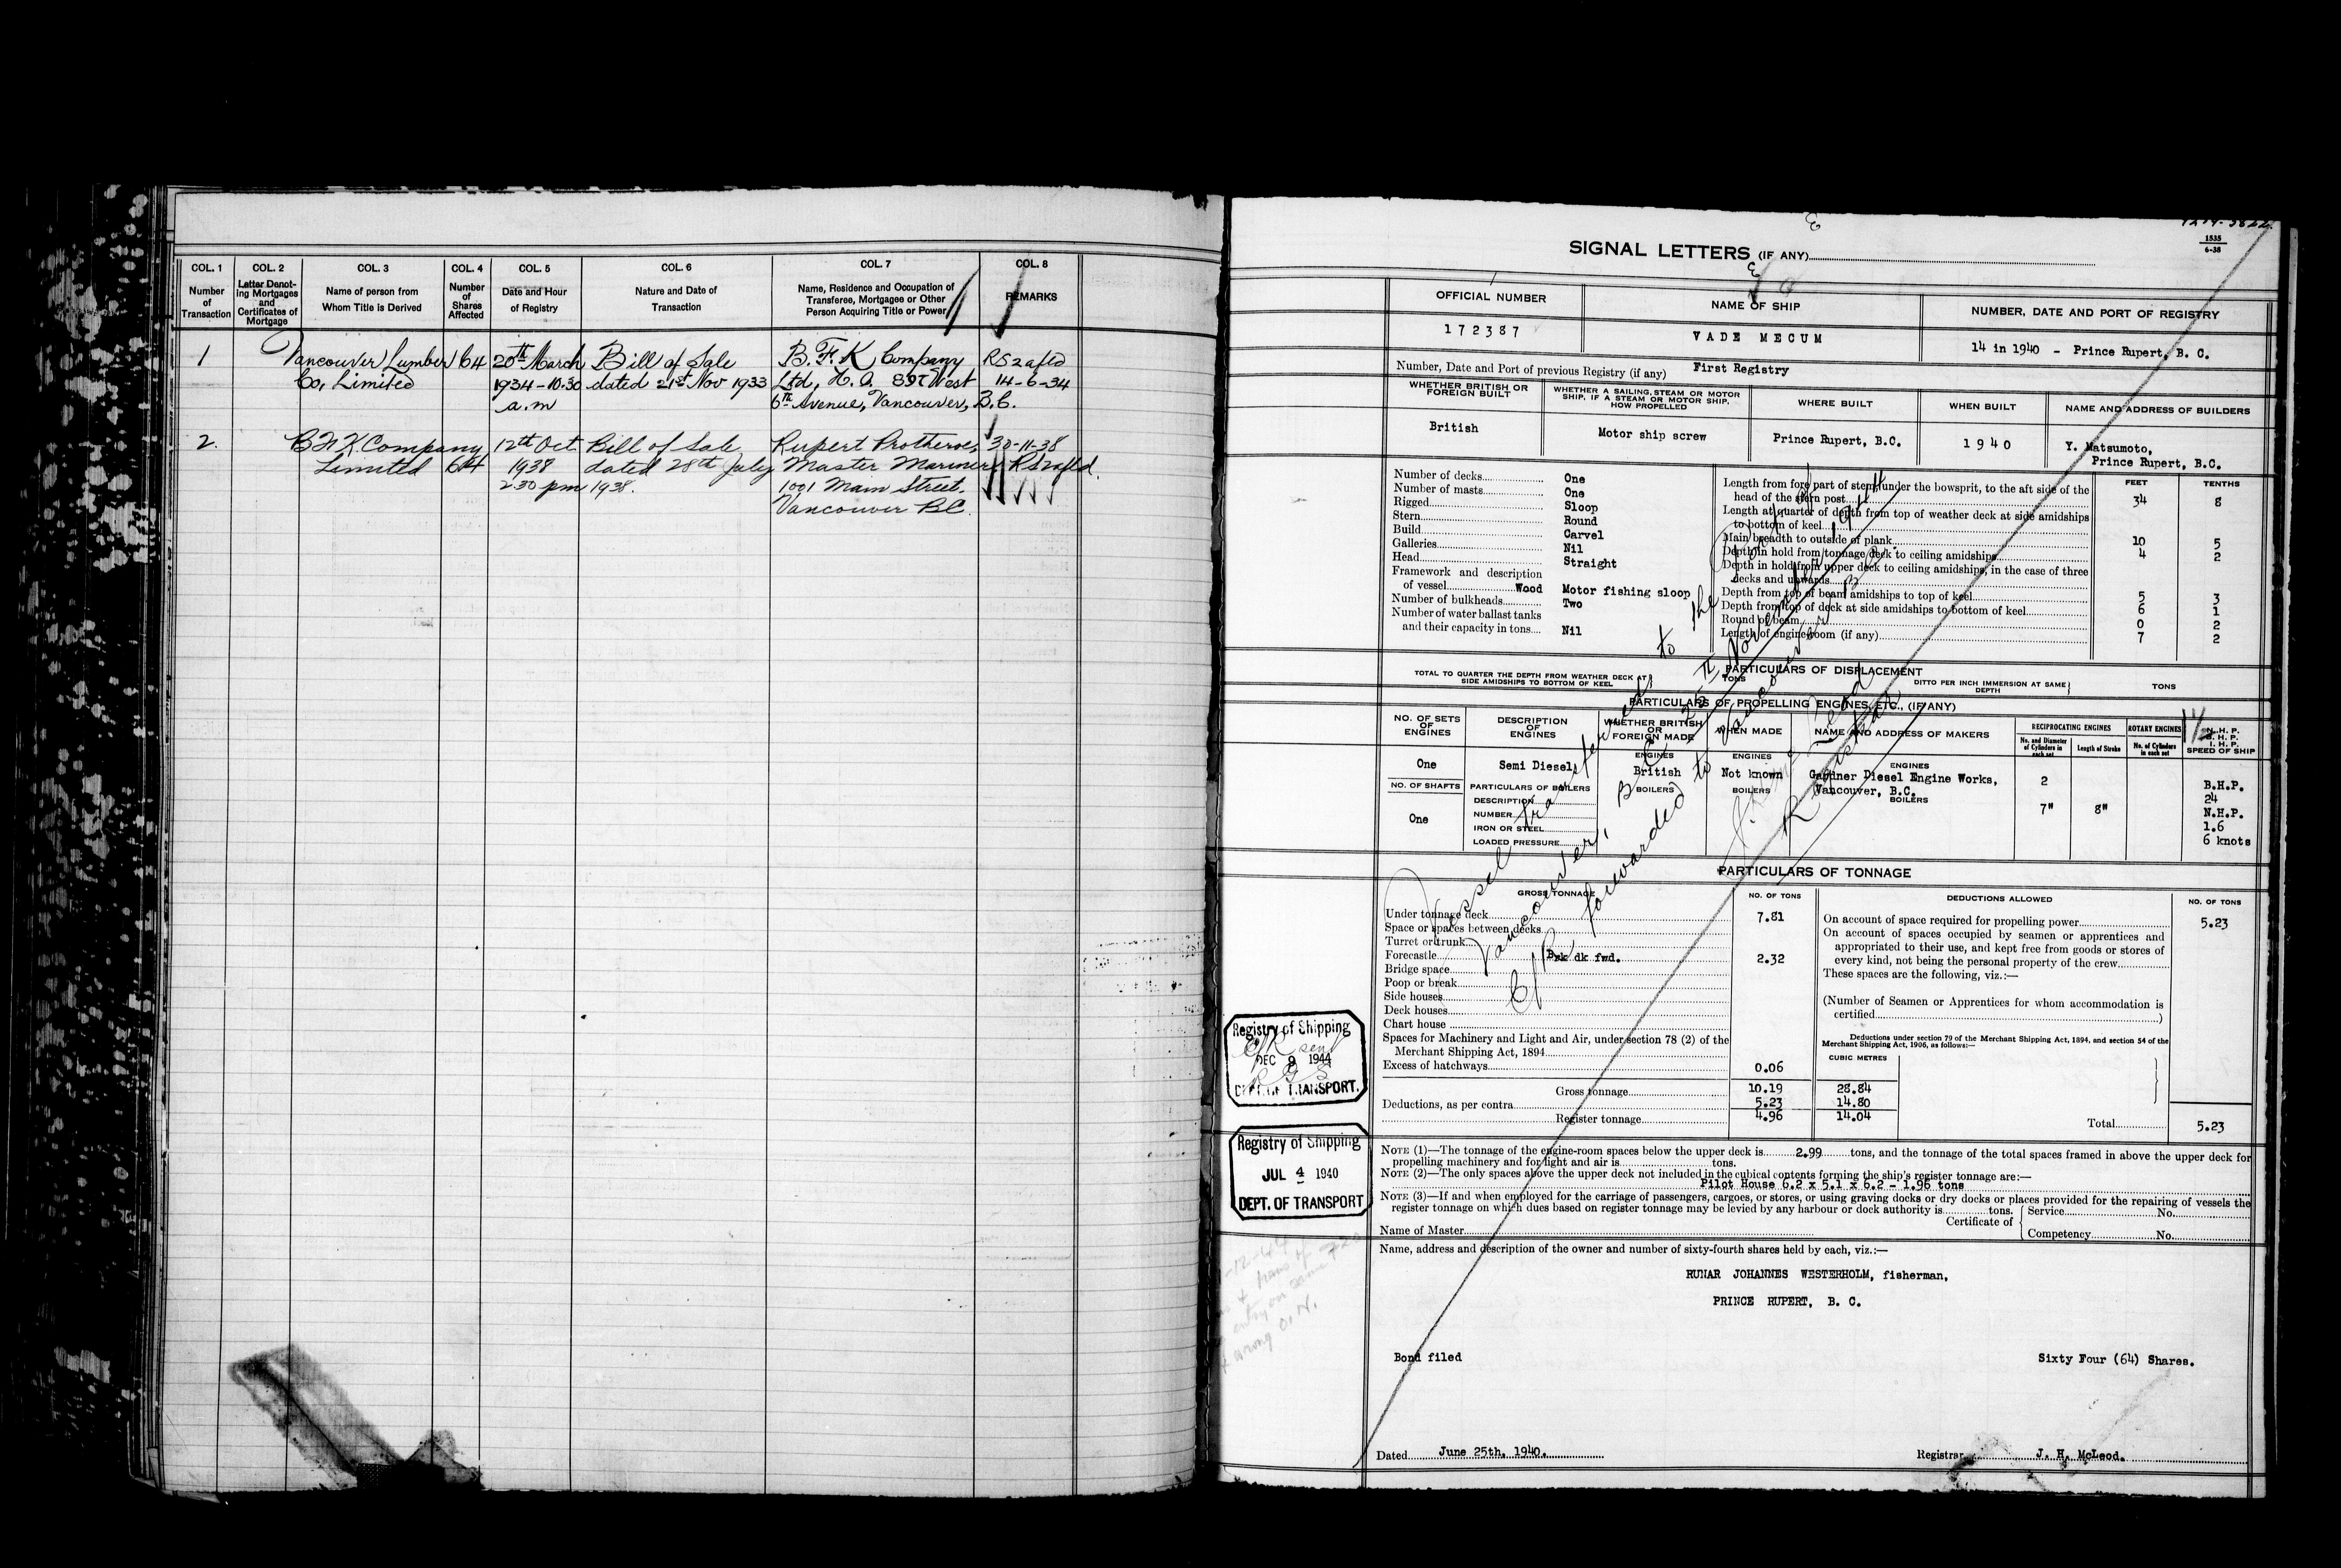 COL. 1 COL. 2 COL. 3 COL. 4 COL. 5 COL. 6 COL. 7 COL. 8
Number of Transaction
Letter Denoting Mortgages and Certificates of Mortgage
Name of person from Whom Title is Derived
Number of Shares Affected
Date and Hour of Registry
Nature and Date of Transaction
Name, Residence and Occupation of Transferee, Mortgagee or Other Person Acquiring Title or Power
REMARKS
1 Vancouver Lumber 64 20th March Bill of Sale B. F. K Company
Co, Limited 1934-10.30 dated 21st Nov 1933 Ltd, H.O. West 14-6-34
a.m 6th Avenue, Vancouver, B.C.
2. Company 12th Oct Bill of Sale Rupert Protheroe, 30-11-38
Limited 64 1938 dated 28th July Master Mariner
2 30 pm 1938. 1001 Main Street,
Vancouver BC.
1535
6-38
SIGNAL LETTERS (IF ANY)
OFFICIAL NUMBER
172387
NAME OF SHIP
VADE MECUM
NUMBER, DATE AND PORT OF REGISTRY
14 in 1940 - Prince Rupert, B. C.
Number, Date and Port of previous Registry (if any) First Registry
WHETHER BRITISH OR FOREIGN BUILT
British
WHETHER A SAILING, STEAM OR MOTOR SHIP, IF A STEAM OR MOTOR SHIP, HOW PROPELLED
Motor ship screw
WHERE BUILT
Prince Rupert, B.C.
WHEN BUILT
1940
NAME AND ADDRESS OF BUILDERS
Y. Matsumoto,
Prince Rupert, B.C.
Number of decks One
Number of masts One
Rigged Sloop
Stern Round
Build Carvel
Galleries Nil
Head Straight
Framework and description
of vessel Wood Motor fishing sloop
Number of bulkheads Two
Number of water ballast tanks
and their capacity in tons Nil
FEET TENTHS
Length from fore part of stem, under the bowsprit, to the aft side of the
head of the stern post 34 8
Length at quarter of depth from top of weather deck at side amidships
to bottom of keel
Main breadth to outside of plank 10 5
Depth in hold from tonnage deck to ceiling amidships 4 2
Depth in hold from upper deck to ceiling amidships, in the case of three
decks and upwards
Depth from top of beam amidships to top of keel 5 3
Depth from top of deck at side amidships to bottom of keel 6 1
Round of beam 0 2
Length of engine room (if any) 7 2
PARTICULARS OF DISPLACEMENT
TOTAL TO QUARTER THE DEPTH FROM WEATHER DECK AT SIDE AMIDSHIPS TO BOTTOM OF KEEL
TONS
DITTO PER INCH IMMERSION AT SAME DEPTH
TONS
PARTICULARS OF PROPELLING ENGINES, ETC., (IF ANY)
NO. OF SETS OF ENGINES
One
NO. OF SHAFTS
One
DESCRIPTION OF ENGINES
Semi Diesel
PARTICULARS OF BOILERS
DESCRIPTION
NUMBER
IRON OR STEEL
LOADED PRESSURE
WHETHER BRITISH OR FOREIGN MADE
ENGINES
British
BOILERS
WHEN MADE
ENGINES
Not known
BOILERS
NAME AND ADDRESS OF MAKERS
ENGINES
Gardner Diesel Engine Works,
Vancouver, B.C.
BOILERS
RECIPROCATING ENGINES
No. and Diameter of Cylinders in each set
Length of Stroke
2
7" 8"
ROTARY ENGINES
No. of Cylinders in each set
N.H.P.
B.H.P.
I.H.P.
SPEED OF SHIP
B.H.P.
24
N.H.P.
1.6
6 knots
Vessel transferred to the Port of
Vancouver, B.C. November, 1944
forwarded to Vancouver B.C.
Registrar
PARTICULARS OF TONNAGE
GROSS TONNAGE NO. OF TONS
Under tonnage deck 7.81
Space or spaces between decks
Turret or trunk
Forecastle Brk dk fwd. 2.32
Bridge space
Poop or break
Side houses
Deck houses
Chart house
Spaces for Machinery and Light and Air, under section 78 (2) of the
Merchant Shipping Act, 1894
Excess of hatchways 0.06
CUBIC METRES
Gross tonnage 10.19 28.84
Deductions, as per contra 5.23 14.80
Register tonnage 4.96 14.04
DEDUCTIONS ALLOWED NO. OF TONS
On account of space required for propelling power 5.23
On account of spaces occupied by seamen or apprentices and
appropriated to their use, and kept free from goods or stores of
every kind, not being the personal property of the crew
These spaces are the following, viz.:—
(Number of Seamen or Apprentices for whom accommodation is
certified)
Deductions under section 79 of the Merchant Shipping Act, 1894, and section 54 of the
Merchant Shipping Act, 1906, as follows:—
Total 5.23
Registry of Shipping
DEC 9 1944
DEPT. OF TRANSPORT.
Registry of Shipping
JUL 4 1940
DEPT. OF TRANSPORT
NOTE (1)—The tonnage of the engine-room spaces below the upper deck is 2.99 tons, and the tonnage of the total spaces framed in above the upper deck for
propelling machinery and for light and air is tons.
NOTE (2)—The only spaces above the upper deck not included in the cubical contents forming the ship's register tonnage are:—
Pilot House 6.2 x 5.1 x 6.2 - 1.96 tons
NOTE (3)—If and when employed for the carriage of passengers, cargoes, or stores, or using graving docks or dry docks or places provided for the repairing of vessels the
register tonnage on which dues based on register tonnage may be levied by any harbour or dock authority is tons.
Name of Master
Certificate of
Service No.
Competency No.
Name, address and description of the owner and number of sixty-fourth shares held by each, viz.:—
RUNAR JOHANNES WESTERHOLM, fisherman,
PRINCE RUPERT, B. C.
Bond filed Sixty Four (64) Shares.
Dated June 25th, 1940. Registrar J. H. McLeod.